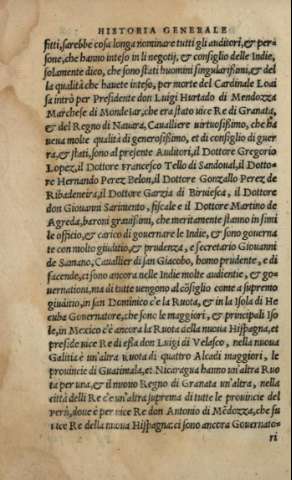 HISTORIA GENERALE
sitti, sarebbe cosa longa nominare tutti gli auditori, & per=
sone, che hanno inteso in li negotij, & consiglio delle Indie,
solamente dico, che sono stati huomini singularissimi, & del
la qualità che hauete inteso, per morte del Cardinale Loai
sa intrò per Presidente don Luigi Hurtado di Mendozza
Marchese di Mondejar, che era stato vice Re di Granata,
& del Regno di Nauara, Caualliere virtuosissimo, che ha
ueua molte qualità di generosissimo, et di consiglio di guer
ra, & stati, sono al presente Auditori, il Dottore Gregorio
Lopez, il Dottore Francesco Tello di Sandoual, il Dotto=
re Hernando Perez Belon, il Dottore Gonzallo Perez de
Ribadeneira, il Dottore Garzia di Biruiesca, il Dottore
don Giouanni Sarmento, fiscale e il Dottore Martino de
Agreda, baroni grauissimi, che meritamente stanno in simi
le officio, & carico di gouernare le Indie, & sono gouerna
te con molto giuditio, & prudenza, e secretario Giouanni
de Samano, Cauallier di san Giacobo, homo prudente, e di
facende, ci sono ancora nelle Indie molte audientie, & go=
uernationi, ma di tutte uengono al cõsiglio come a supremo
giuditio, in san Dominico c'è la Ruota, & in la Isola di He
cuba Gouernatore, che sono le maggiori, & principali Iso
le, in Mexico c'è ancora la Ruota della nuoua Hispagna, et
preside uice Re di essa don Luigi di Velasco, nella nuoua
Galitia è un'altra Ruota di quattro Alcadi maggiori, le
prouincie di Guatimala, et Nicaragua hanno un'altra Ruo
ta per una, & il nuouo Regno di Granata un'altra, nella
città delli Re c'è un'altra suprema di tutte le prouincie del
Perù, doue è per uice Re don Antonio di Mẽdozza, che fu
vice Re della nuoua Hispagna: ci sono ancora Gouernato=
ri